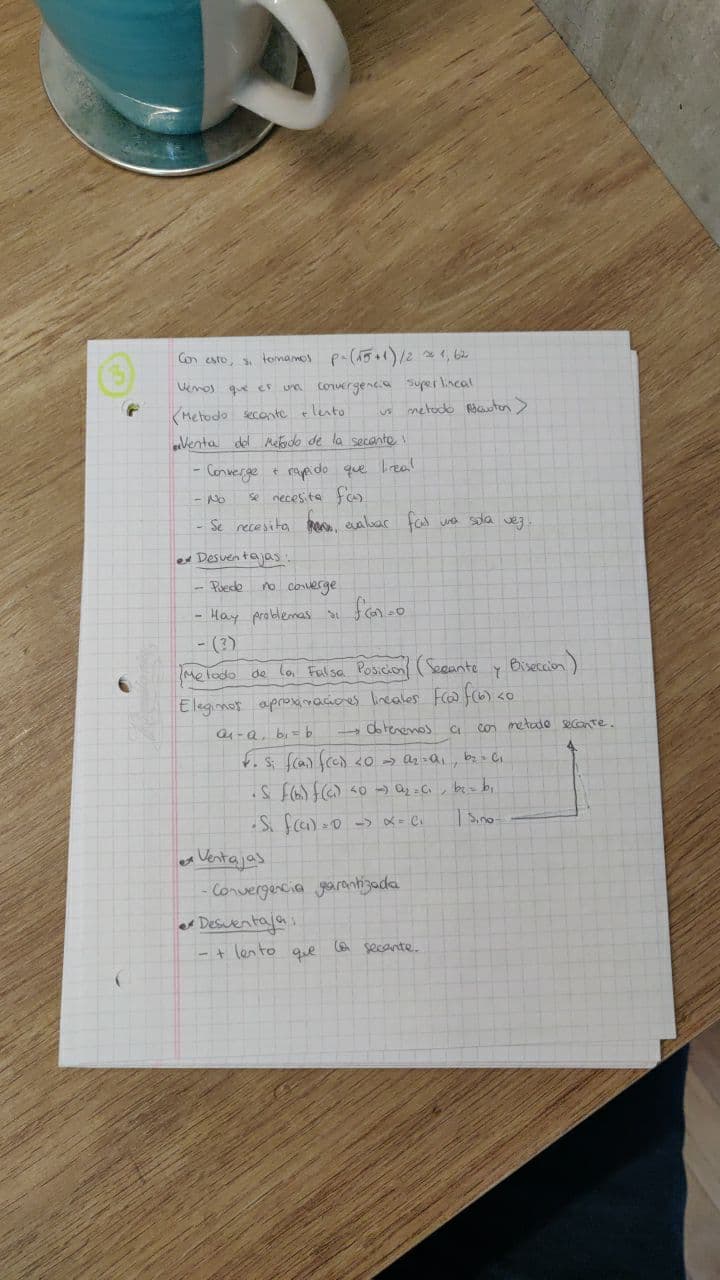 3
Con esto, si tomamos p=(√5+1)/2 ≈ 1,62
Vemos que es una convergencia superlineal
<Metodo secante + lento vs metodo Newton>
Venta del Metodo de la secante:
- Converge + rapido que lineal
- No se necesita f'(x)
- Se necesita evaluar f(x) una sola vez.
Desventajas:
- Puede no converge
- Hay problemas si f'(α)=0
- (?)
Metodo de la Falsa Posicion (Secante y Biseccion)
Elegimos aproximaciones lineales f(a) f(b) <0
a₁=a, b₁=b → Obtenemos c₁ con metodo secante.
· Si f(a₁) f(c₁) <0 → a₂=a₁, b₂=c₁
· Si f(b₁) f(c₁) <0 → a₂=c₁, b₂=b₁
· Si f(c₁)=0 → α=c₁ | Sino
Ventajas
- Convergencia garantizada
Desventaja:
- + lento que la secante.